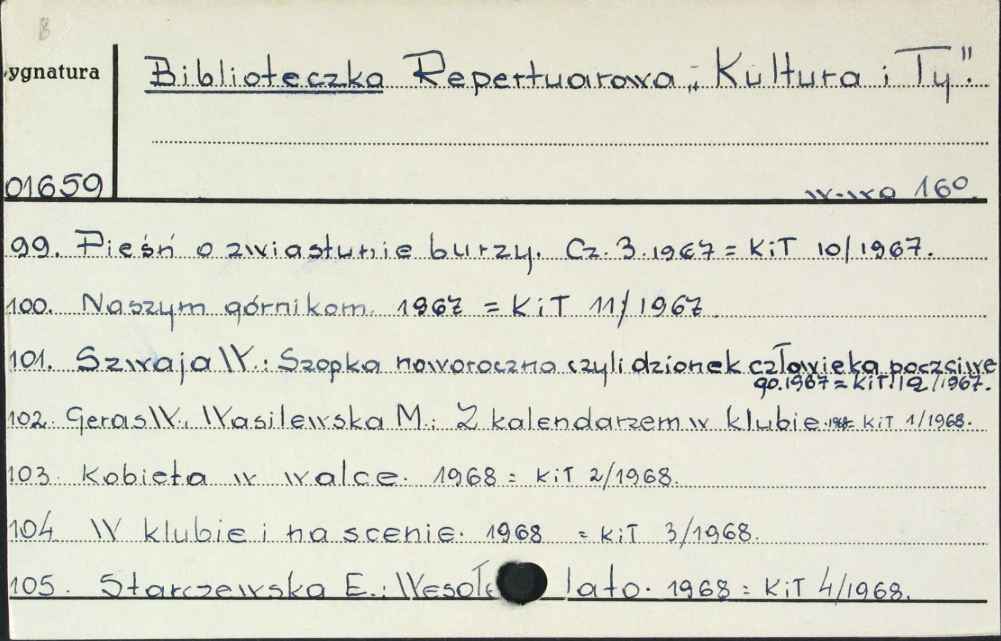 8
ygnatura Biblioteczka Repertuarowa „Kultura i Ty".
01659 W-wa 16°.
99. Pieśń o zwiastunie burzy. Cz. 3. 1967 = KiT 10/1967.
100. Naszym górnikom. 1967 = KiT 11/1967.
101. Szwaja W.: Szopka noworoczna czyli dzionek człowieka poczciwe
go. 1967 = KiT 12/1967.
102. Geras W., Wasilewska M.: Z kalendarzem w klubie. 1968 = KiT 1/1968.
103. Kobieta w walce. 1968 = KiT 2/1968.
104 W klubie i na scenie. 1968 = KiT 3/1968.
105. Starczewska E.: Wesołe lato. 1968 = KiT 4/1968.